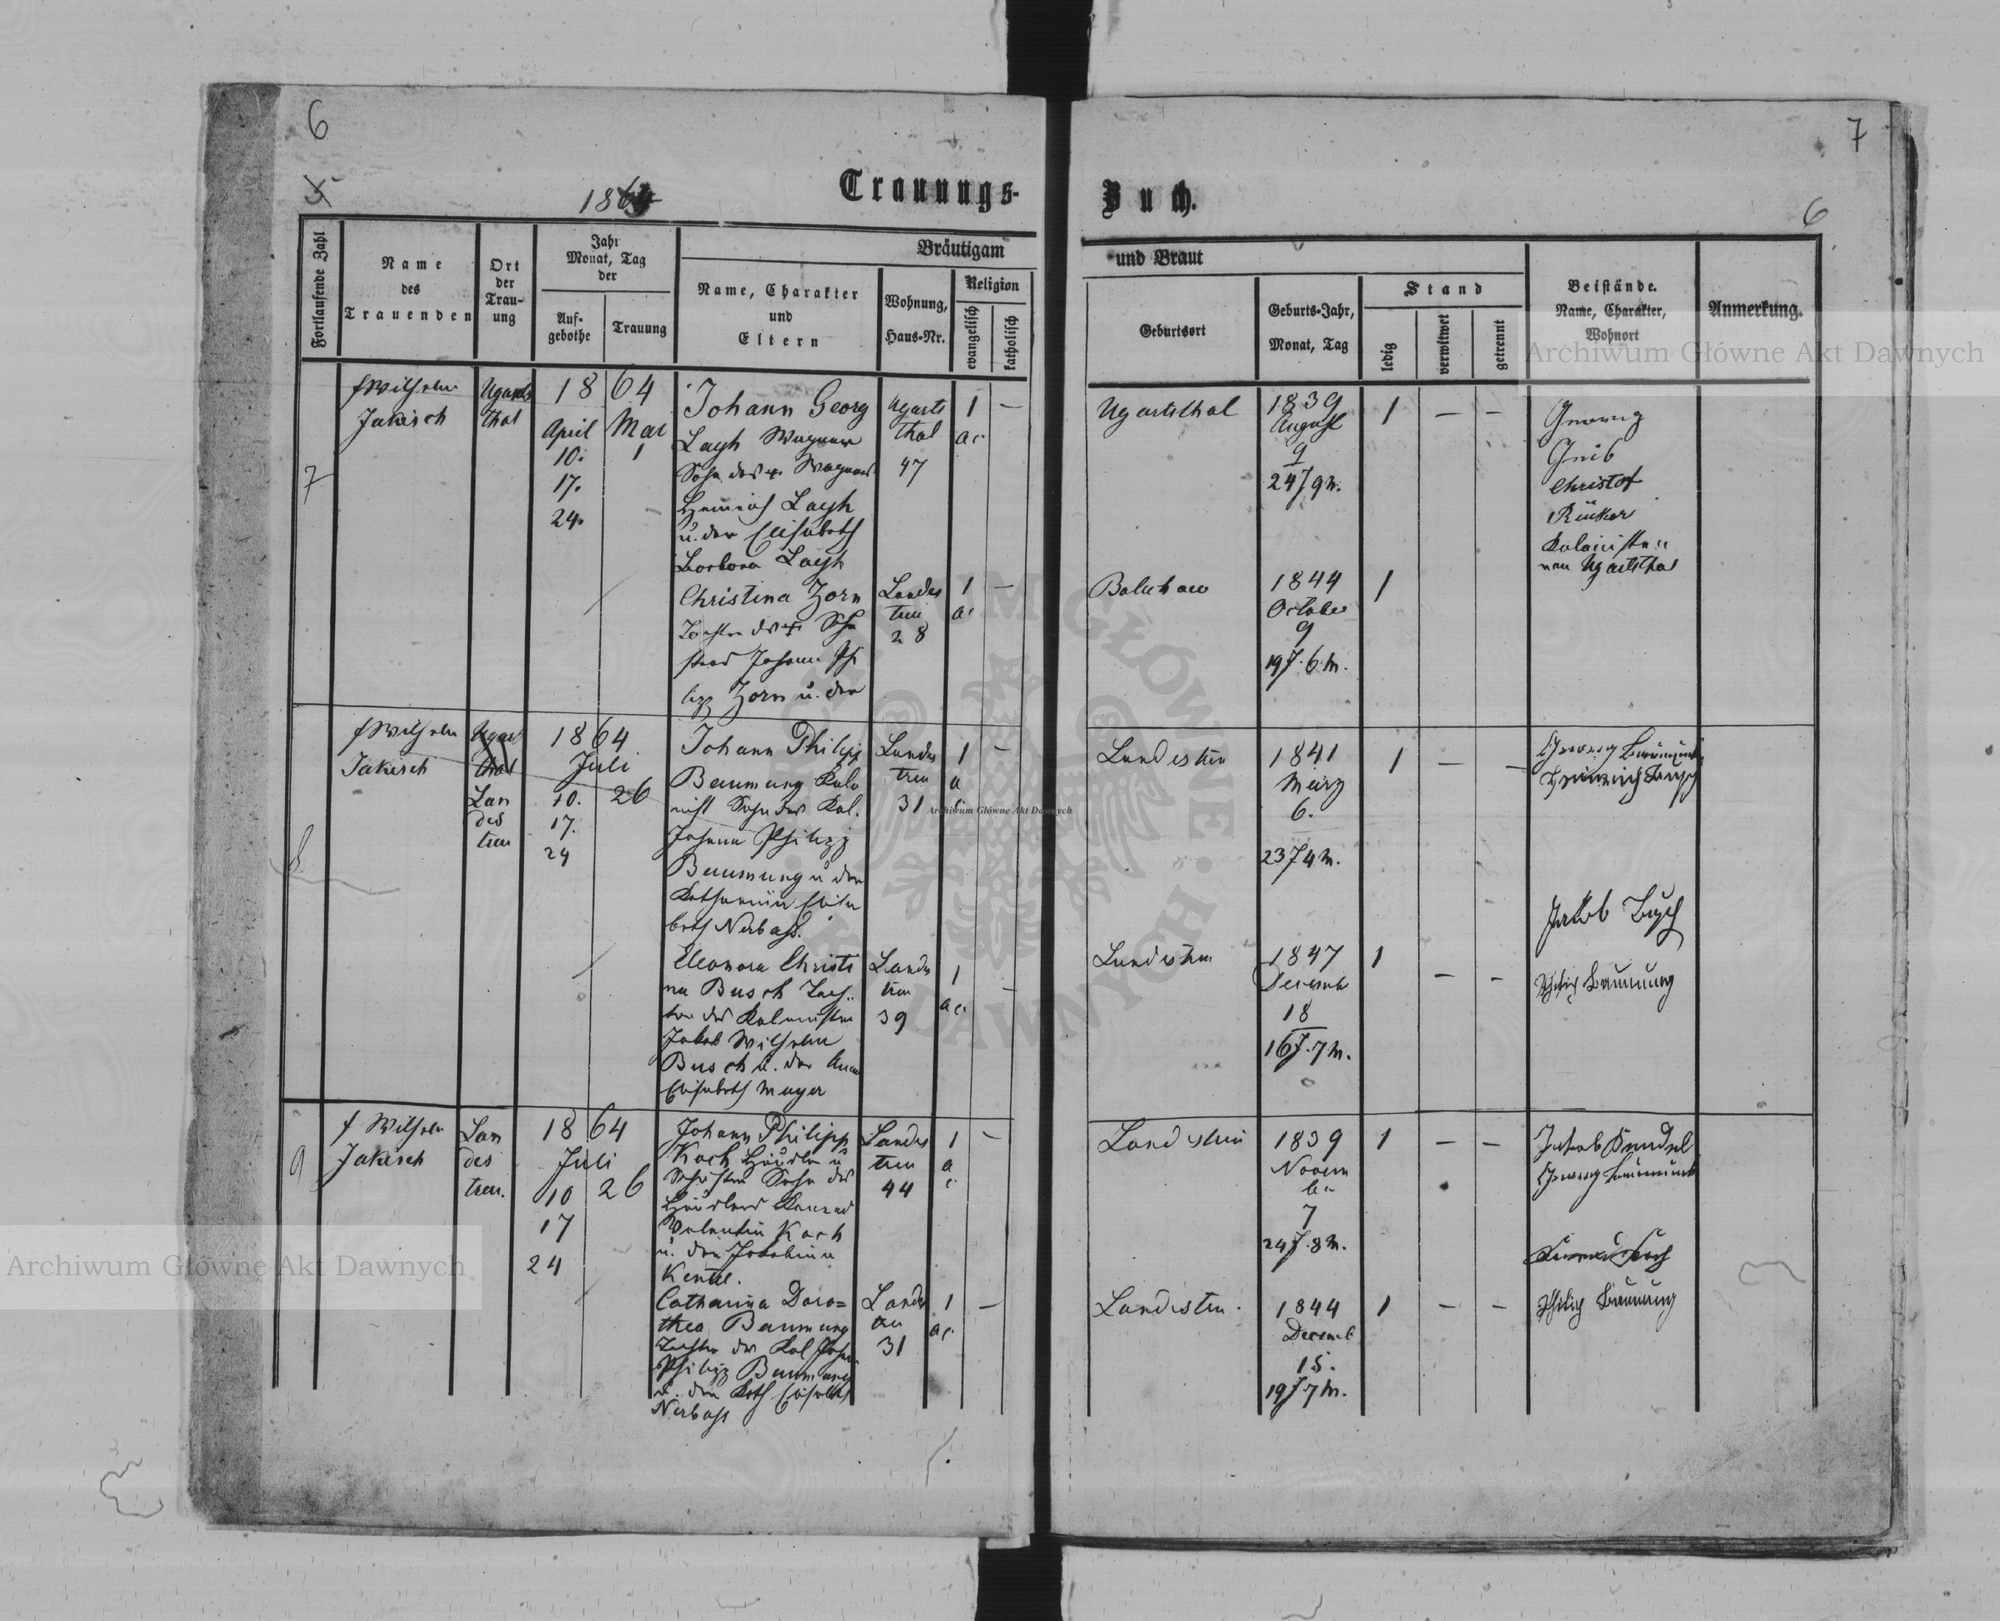 6
7
5
1864
Trauungs-
Buch.
6
Fortlaufende Zahl
Name
des
Trauenden
Ort
der
Trau-
ung
Jahr
Monat, Tag
der
Auf-
gebothe
Trauung
Bräutigam
und Braut
Name, Charakter
und
Eltern
Wohnung,
Haus-Nr.
Religion
evangelisch
katholisch
Geburtsort
Geburts-Jahr,
Monat, Tag
Stand
ledig
verwitwet
getrennt
Beistände.
Name, Charakter,
Wohnort
Anmerkung.
7
Wilhelm
Jakisch
Ugarts
thal
1864
April
10.
17.
24.
Mai
1
Johann Georg
Wagner
Sohn des Wagners
Heinrich
u. der Elisabeth
Barbara
Ugarts
thal
47
1
ac
—
Ugartsthal
1839
August
9
24 J 9 M.
1
—
—
Christof
Kolonisten
Ugartsthal
Christina Zorn
Tochter des
Johann Phi
lipp Zorn u. der
Landes
treu
28
1
—
1844
October
9
19 J. 6. M.
1
8
Wilhelm
Jakisch
Ugarts
thal
Lan
des
treu
1864
Juli
10.
17.
24
26
Johann Philipp
Baumung Kolo
nist Sohn des Kol.
Johann Philipp
Baumung u der
Katharina Elisa
beth Nerbass.
Landes
treu
31
1
a
—
Landestreu
1841
März
6.
23 J 4 M.
1
—
—
Eleonora Christi
na Busch Toch-
ter des Kolonisten
Jakob Wilhelm
Busch u. der Anna
Elisabeth Mayer
Landes
treu
39
1
ac.
—
Landestreu
1847
Decemb
18
16 J. 7 M.
1
—
—
Jakob Busch
Philip Baumung
9
Wilhelm
Jakisch
Lan
des
treu.
1864
Juli
10
17
24
26
Johann Philipp
Koch Händler u
Sohn des
Händlers Konrad
Valentin Koch
u. der Jakobina
Landes
treu
44
1
a
c.
—
Landestreu
1839
Novem
ber
7
24 J. 8 M.
1
—
—
Catharina Doro=
thea Baumung
Tochter des Kol Johan
Philipp Baumung
u. der Kath Elisabeth
Nerbass
Landes
treu
31
1
ac.
—
Landestreu.
1844
Decemb
15.
19 J 7 M.
1
—
—
Philip Baumung
Archiwum Główne Akt Dawnych
Archiwum Główne Akt Dawnych
Archiwum Główne Akt Dawnych